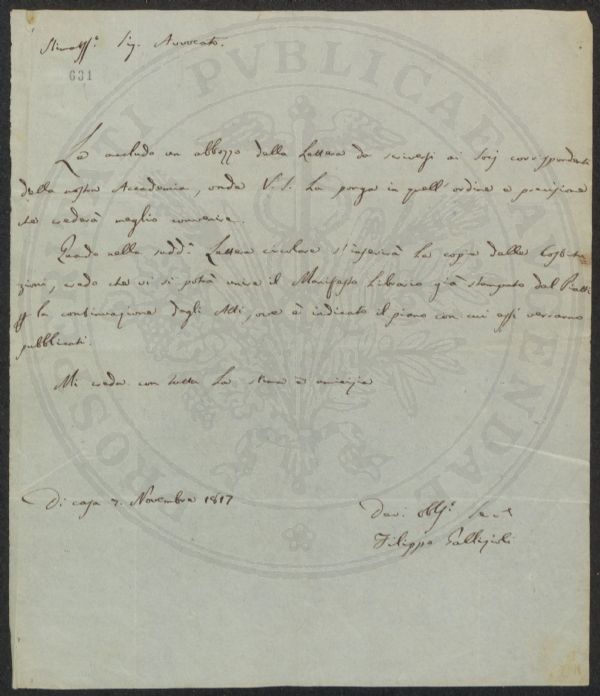 Stimatiss.º Sig. Avvocato.
631
Le accludo un abbozzo della Lettera da scriversi ai Socj corrispondenti
della nostra Accademia, onde V. S. La ponga in quell'ordine e precisione
che crederà meglio convenire.
Quando nella sudd.ª Lettera circolare s'inserirà la copia delle Costitu-
zioni, credo che vi si potrà unire il Manifesto Librario già stampato dal Piatti
la continuazione degli Atti, ove è indicato il piano con cui essi verranno
pubblicati.
Mi creda con tutta la stima e amicizia
Di casa 7. Novembre 1817
Dev. obbl.º
Filippo Gallizioli
PROSPERITATI PVBLICAE AVGENDAE